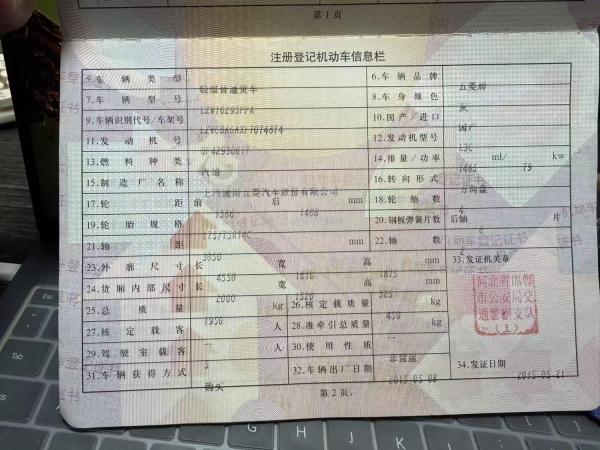 第1页
注册登记机动车信息栏
5.车辆类型 轻型普通货车 6.车辆品牌 五菱牌
7.车辆型号 8.车身颜色 灰
9.车辆识别代号/车架号 10.国产/进口 国产
11.发动机号 12.发动机型号
13.燃料种类 汽油 14.排量/功率 1485 ml/ 79 kw
15.制造厂名称 上汽通用五菱汽车股份有限公司 16.转向形式 方向盘
17.轮距 前 1386 后 1408 mm 18.轮胎数 4
19.轮胎规格 175/75R14C 20.钢板弹簧片数 后轴 6 片
21.轴距 3050 mm 22.轴数
23.外廓尺寸 长 4550 宽 1610 高 1875 mm 33.发证机关章
24.货厢内部尺寸 长 2000 宽 1520 高 325 mm
河北省邯郸
市公安局交
通警察支队
(1)
25.总质量 1950 kg 26.核定载质量 450 kg
27.核定载客 人 28.准牵引总质量 kg
29.驾驶室载客 5 人 30.使用性质 非营运
31.车辆获得方式 购买 32.车辆出厂日期 2015-05-08 34.发证日期 2015-05-21
第2页